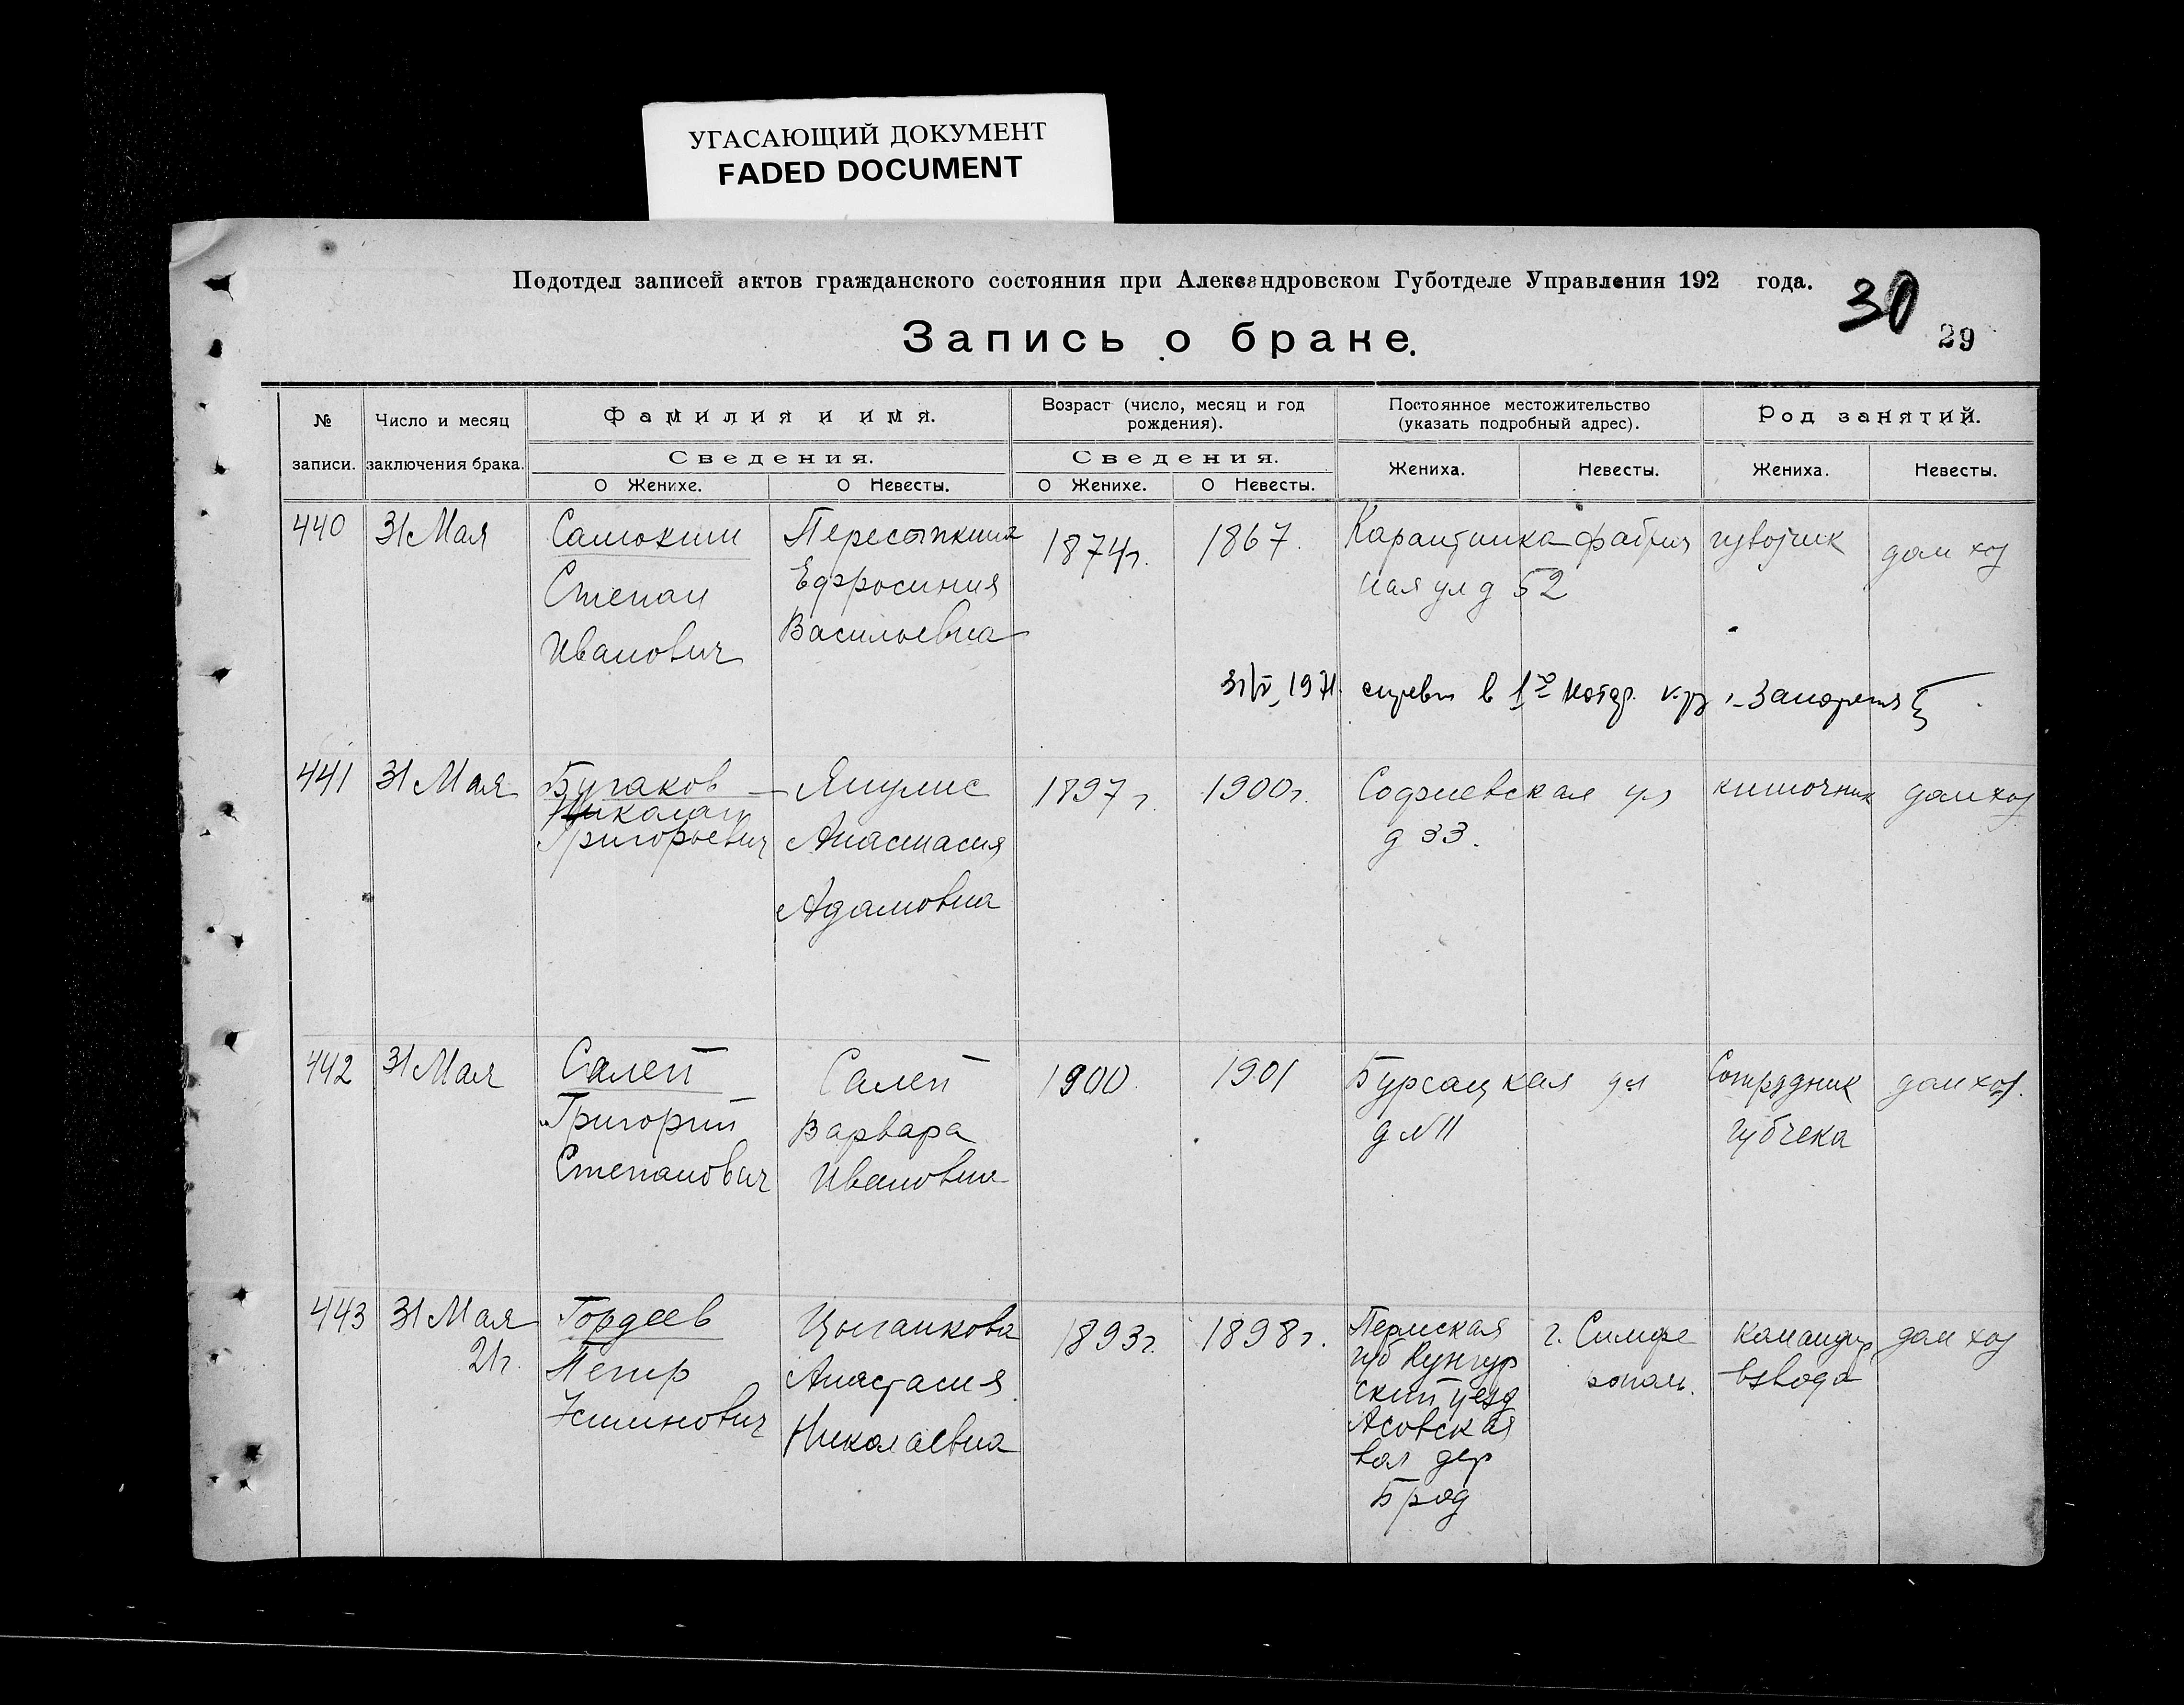 УГАСАЮЩИЙ ДОКУМЕНТ
FADED DOCUMENT
Подотдел записей актов гражданского состояния при Александровском Губотделе Управления 192 года.
30
29
Запись о браке.
№ записи.
Число и месяц заключения брака.
Фамилия и имя.
Сведения.
О Женихе.
О Невесты.
Возраст (число, месяц и год рождения).
Сведения.
О Женихе.
О Невесты.
Постоянное местожительство (указать подробный адрес).
Жениха.
Невесты.
Род занятий.
Жениха.
Невесты.
440
31 Мая
Самохин
Степан
Иванович
Пересыпкина
Ефросиния
Васильевна
1874г.
1867.
Карантинка фабрич
ная ул д 52
дом хоз
441
31 Мая
Бугаков
Николай
Григорьевич
Янулис
Анастасия
Адамовна
1897г.
1900г.
Софиевская ул
д 33.
кишочник
дом хоз
442
31 Мая
Салей
Григорий
Степанович
Салей
Варвара
Ивановна
1900.
1901
Бурсацкая ул
д №11
Сотрудник
губчека
дом хоз.
443
31 Мая
21г.
Гордеев
Петр
Устинович
Цыганкова
Анастасия
Николаевна
1893г.
1898г.
Пермская
губ Кунгур
ский уезд
Асовская
вол дер
Брод
г. Симфе
рополь.
командир
взвода
дом хоз